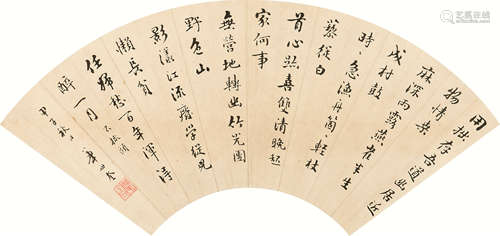 用拙存吾道幽居近
物情桑
麻深雨露燕雀半生
成村鼓
時〻急漁舟箇〻輕杖
藜從白
首心跡喜雙清晚起
家何事
無營地轉幽竹光團
野色山
影漾江流廢學從兒
懶長貧
任婦愁百年渾得
醉一月不梳頭
甲子秋日華世奎